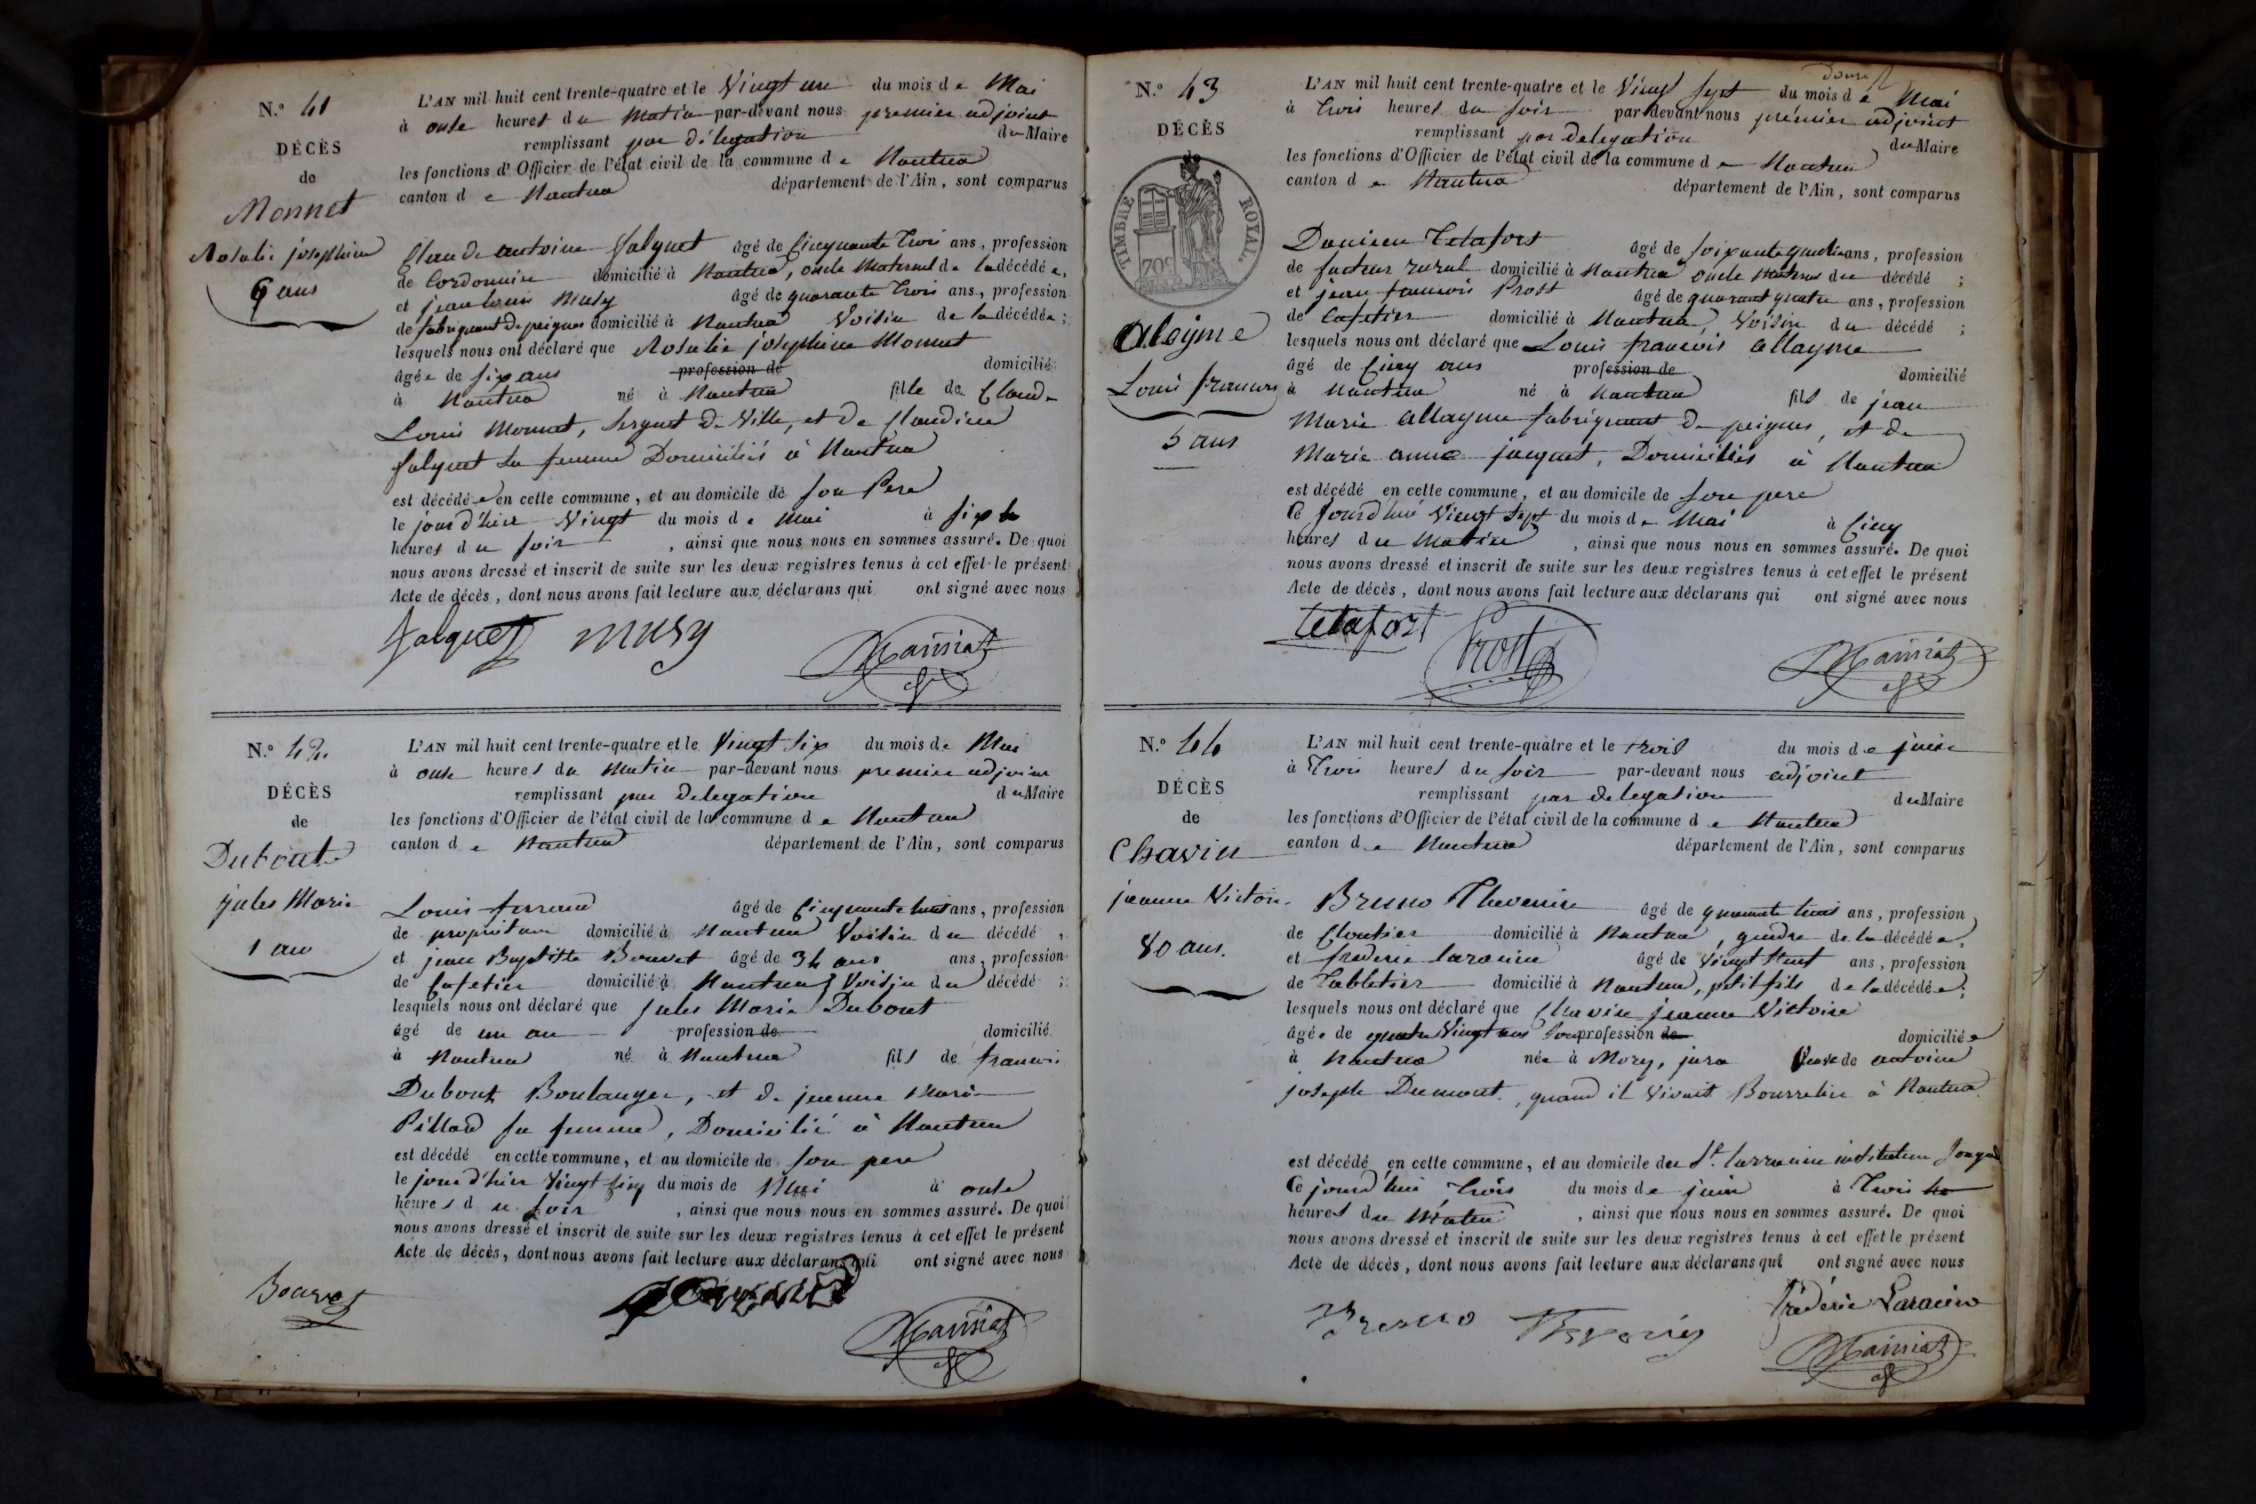 N.° 41
DÉCÈS
de
Monnet
Rosalie josephine
6 ans
L'AN mil huit cent trente-quatre et le Vingt un du mois de Mai
à onze heures du Matin par-devant nous premier adjoint
remplissant par délegation du Maire
les fonctions d'Officier de l'état civil de la commune de Nantua
canton de Nantua département de l'Ain, sont comparus
Claude antoine Jalquet âgé de Cinquante trois ans, profession
de Cordonnier domicilié à Nantua, oncle Maternel de la décédée,
et jean louis Musy âgé de quarante trois ans, profession
de fabriquant de peignes domicilié à Nantua Voisin de la décédée;
lesquels nous ont déclaré que Rosalie josephine Monnet
âgée de six ans profession de domicilié
à Nantua né à Nantua fille de Claude
Louis Monnet, sergent de Ville, et de Claudine
Jalquet sa femme Domiciliés à Nantua
est décédée en cette commune, et au domicile de son Pere
le jour d'hier Vingt du mois de Mai à six
heures du soir, ainsi que nous nous en sommes assuré. De quoi
nous avons dressé et inscrit de suite sur les deux registres tenus à cet effet le présent
Acte de décès, dont nous avons fait lecture aux déclarans qui ont signé avec nous
Jalquet musy Mainiat
N.° 42.
DÉCÈS
de
Dubout
jules Marie
1 an
L'AN mil huit cent trente-quatre et le Vingt six du mois de Mai
à onze heures du Matin par-devant nous premier adjoint
remplissant par délegation du Maire
les fonctions d'Officier de l'état civil de la commune de Nantua
canton de Nantua département de l'Ain, sont comparus
Louis ferrand âgé de Cinquante huit ans, profession
de propriétaire domicilié à Nantua Voisin du décédé,
et jean Baptiste Bouvet âgé de 34 ans ans, profession
de Cafetier domicilié à Nantua Voisin du décédé;
lesquels nous ont déclaré que Jules Marie Dubout
âgé de un an profession de domicilié
à Nantua né à Nantua fils de francois
Dubout Boulanger, et de jeanne Marie
Pilland sa femme, Domicilié à Nantua
est décédé en cette commune, et au domicile de son pere
le jour d'hier Vingt cinq du mois de Mai à onze
heures du soir, ainsi que nous nous en sommes assuré. De quoi
nous avons dressé et inscrit de suite sur les deux registres tenus à cet effet le présent
Acte de décès, dont nous avons fait lecture aux déclarans qui ont signé avec nous
Bouvet Mainiat
N.° 43
DÉCÈS
de
TIMBRE ROYAL
70c
Alleyme
Louis francois
5 ans
L'AN mil huit cent trente-quatre et le Vingt sept du mois de Mai
à trois heures du soir par devant nous prémier adjoint
remplissant par delegation du Maire
les fonctions d'Officier de l'état civil de la commune de Nantua
canton de Nantua département de l'Ain, sont comparus
Damien Tetafort âgé de soixante quatre ans, profession
de facteur rural domicilié à Nantua oncle Maternel du décédé;
et jean francois Prost âgé de quarante quatre ans, profession
de Cafetier domicilié à Nantua, Voisin du décédé;
lesquels nous ont déclaré que Louis francois allayme
âgé de Cinq ans profession de domicilié
à Nantua né à Nantua fils de jean
Marie allayme fabriquant de peignes, et de
Marie anne jacquet, Domiciliés à Nantua
est décédé en cette commune, et au domicile de son pere
Ce jourd'hui Vingt sept du mois de Mai à Cinq
heures du Matin, ainsi que nous nous en sommes assuré. De quoi
nous avons dressé et inscrit de suite sur les deux registres tenus à cet effet le présent
Acte de décès, dont nous avons fait lecture aux déclarans qui ont signé avec nous
tetafort Prost Mainiat
N.° 44
DÉCÈS
de
Chavin
jeanne Victoire
80 ans.
L'AN mil huit cent trente-quatre et le trois du mois de juin
à trois heures du soir par-devant nous adjoint
remplissant par delegation du Maire
les fonctions d'Officier de l'état civil de la commune de Nantua
canton de Nantua département de l'Ain, sont comparus
Bruno Thevenin âgé de quarante trois ans, profession
de Cloutier domicilié à Nantua, gendre de la décédée,
et frederic laracine âgé de Vingt huit ans, profession
de Tabletier domicilié à Nantua, petit fils de la décédée;
lesquels nous ont déclaré que Chavin jeanne Victoire
âgée de quatre Vingt ans profession de domiciliée
à Nantua née à Morez, jura Veuve de antoine
joseph Dumont, quand il Vivait Bourrelier à Nantua.
est décédé en cette commune, et au domicile du Sr. larracine instituteur
Ce jourd'hui trois du mois de juin à trois
heures du Matin, ainsi que nous nous en sommes assuré. De quoi
nous avons dressé et inscrit de suite sur les deux registres tenus à cet effet le présent
Acte de décès, dont nous avons fait lecture aux déclarans qui ont signé avec nous
Bruno Thevenin Fréderic Laracine
Mainiat